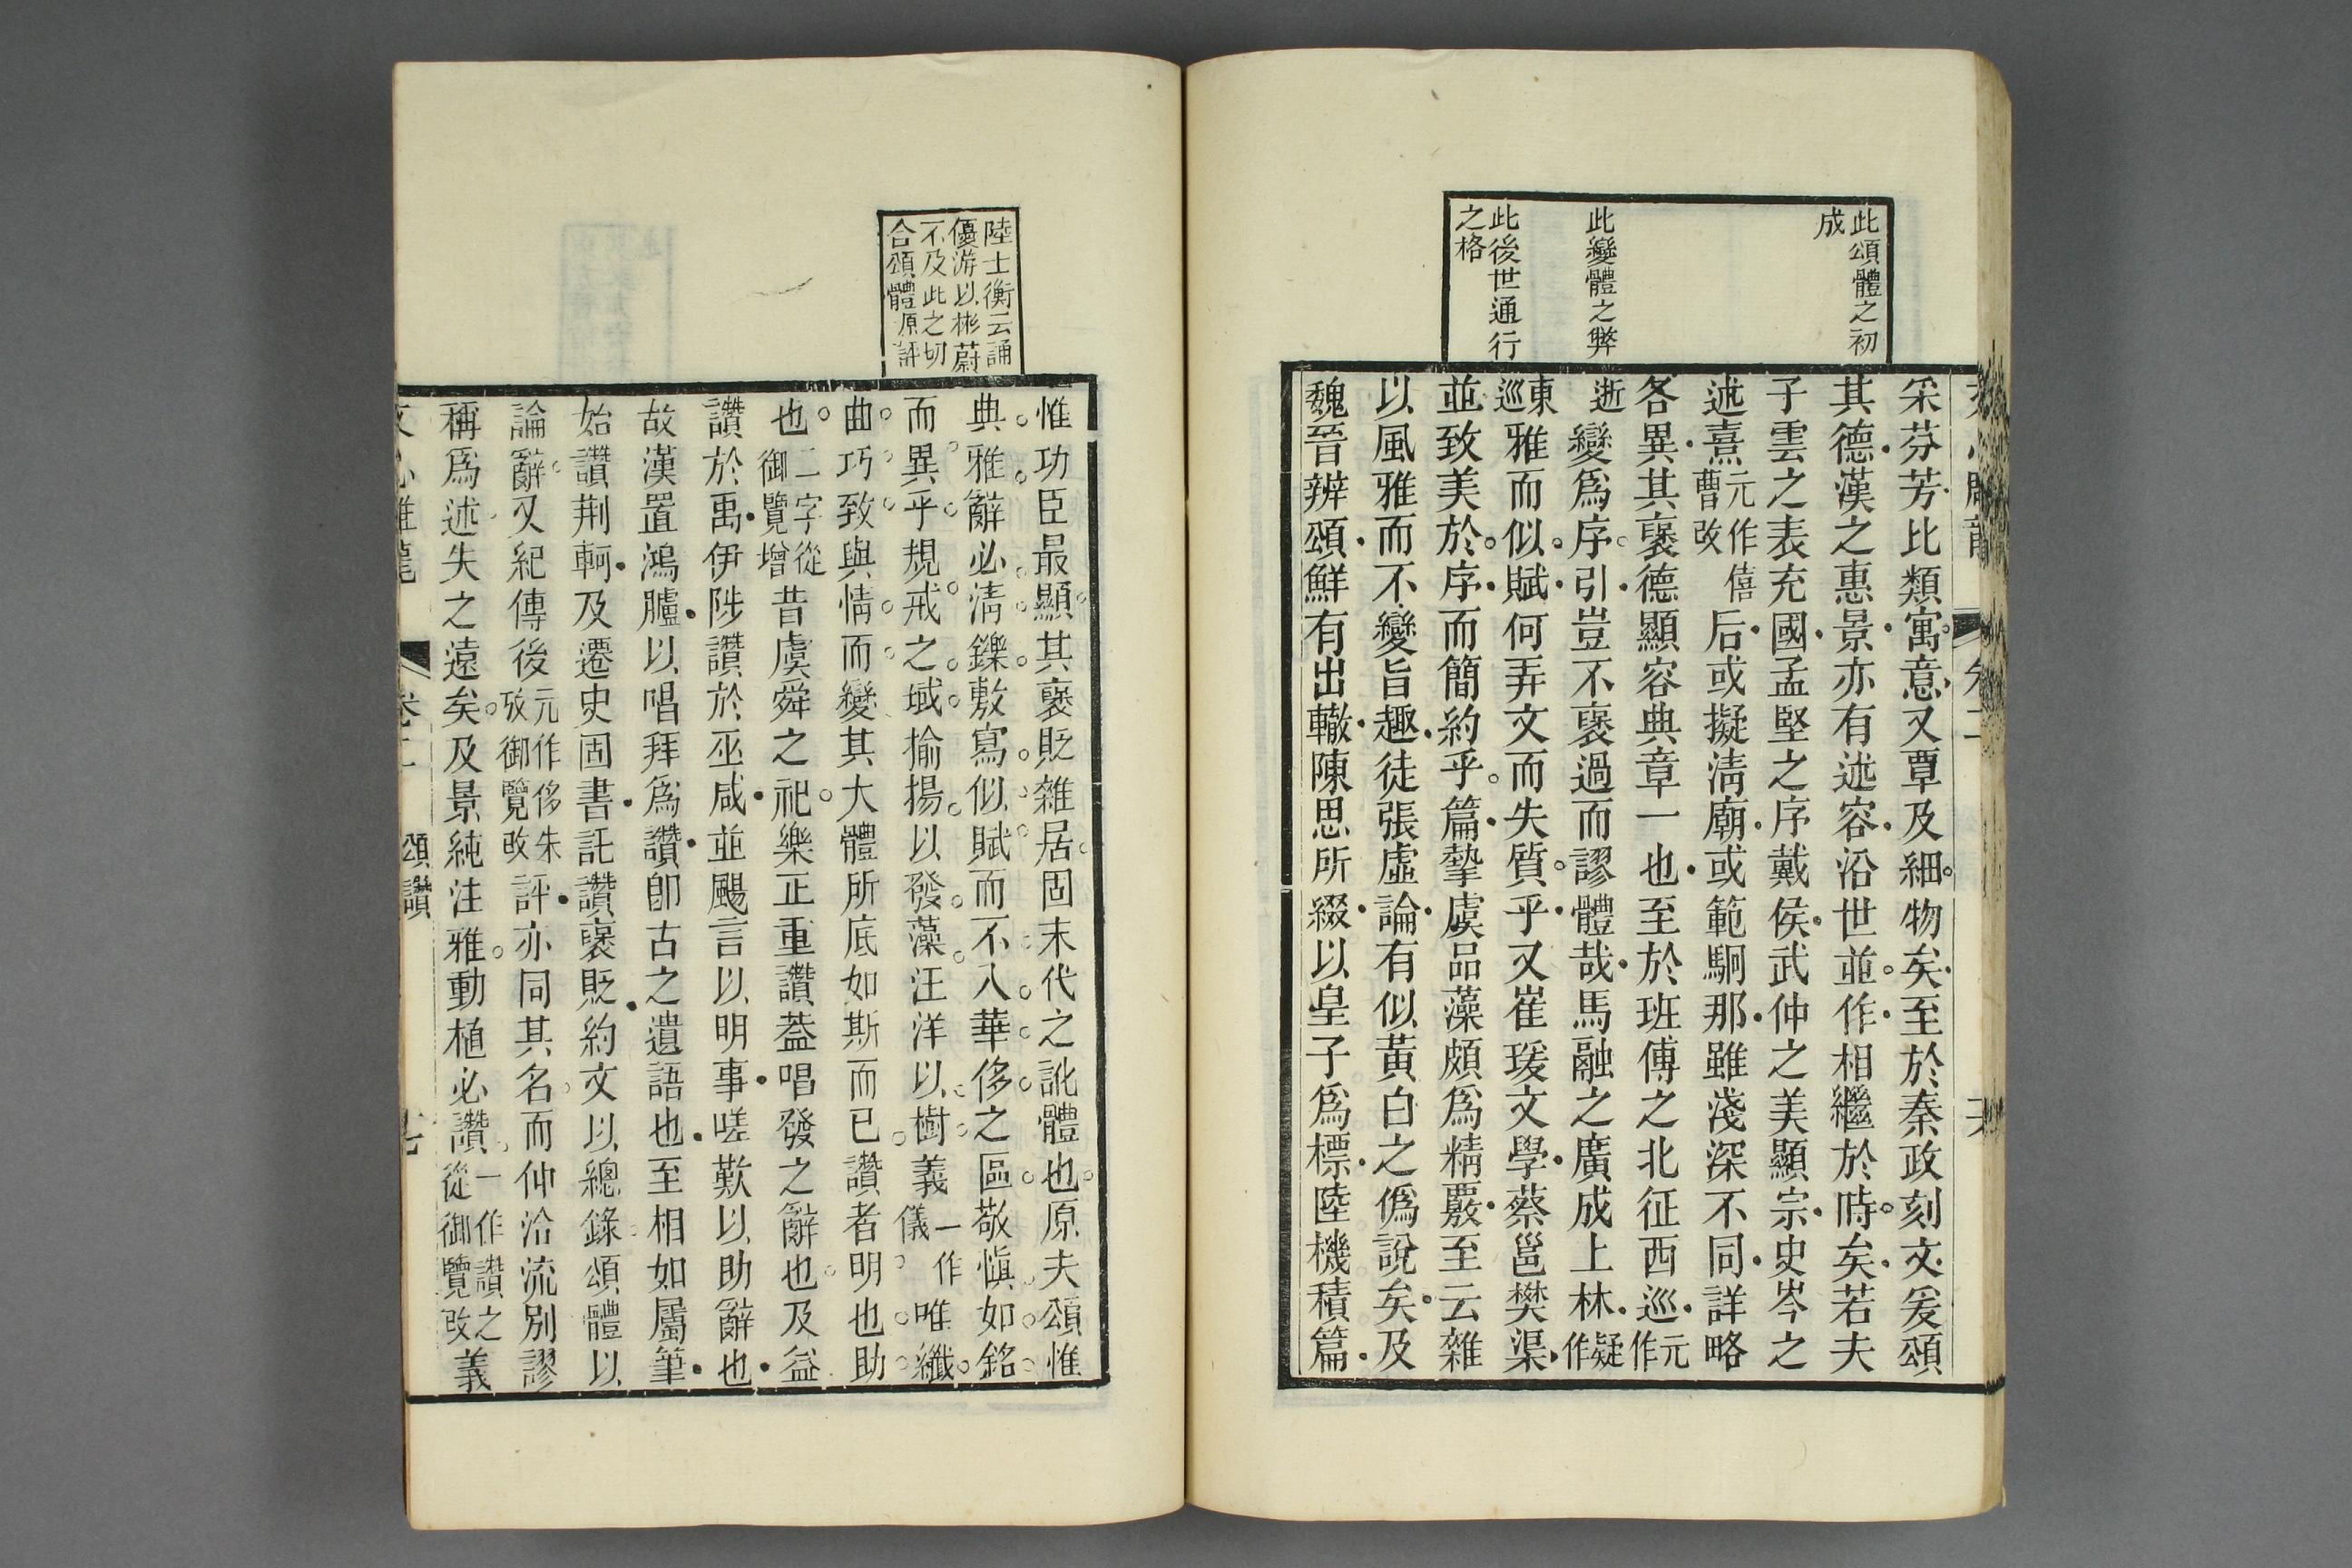 此頌體之初
成
此變體之弊
此後世通行
之格
采芬芳比類寓意又覃及細物矣至於秦政刻文爰頌
其德漢之惠景亦有述容沿世並作相繼於時矣若夫
子雲之表充國孟堅之序戴侯武仲之美顯宗史岑之
述熹元作僖曹改后或擬淸廟或範駉那雖淺深不同詳略
各異其襃德顯容典章一也至於班傅之北征西巡元作
逝變爲序引豈不襃過而謬體哉馬融之廣成上林疑作
東巡雅而似賦何弄文而失質乎又崔瑗文學蔡邕樊渠
並致美於序而簡約乎篇摯虞品藻頗爲精覈至云雜
以風雅而不變旨趣徒張虛論有似黃白之僞說矣及
魏晉辨頌鮮有出轍陳思所綴以皇子爲標陸機積篇
陸士衡云誦
優游以彬蔚
不及此之切
合頌體原評
惟功臣最顯其襃貶雜居固末代之訛體也原夫頌惟
典雅辭必淸鑠敷寫似賦而不入華侈之區敬愼如銘
而異乎規戒之域揄揚以發藻汪洋以樹義一作儀唯纖
曲巧致與情而變其大體所底如斯而已讚者明也助
也二字從御覽增昔虞舜之祀樂正重讚葢唱發之辭也及益
讚於禹伊陟讚於巫咸並颺言以明事嗟歎以助辭也
故漢置鴻臚以唱拜爲讚卽古之遺語也至相如屬筆
始讚荆軻及遷史固書託讚襃貶約文以總錄頌體以
論辭又紀傳後元作侈朱攷御覽改評亦同其名而仲洽流別謬
稱爲述失之遠矣及景純注雅動植必讚一作讃之從御覽改義
頌讚